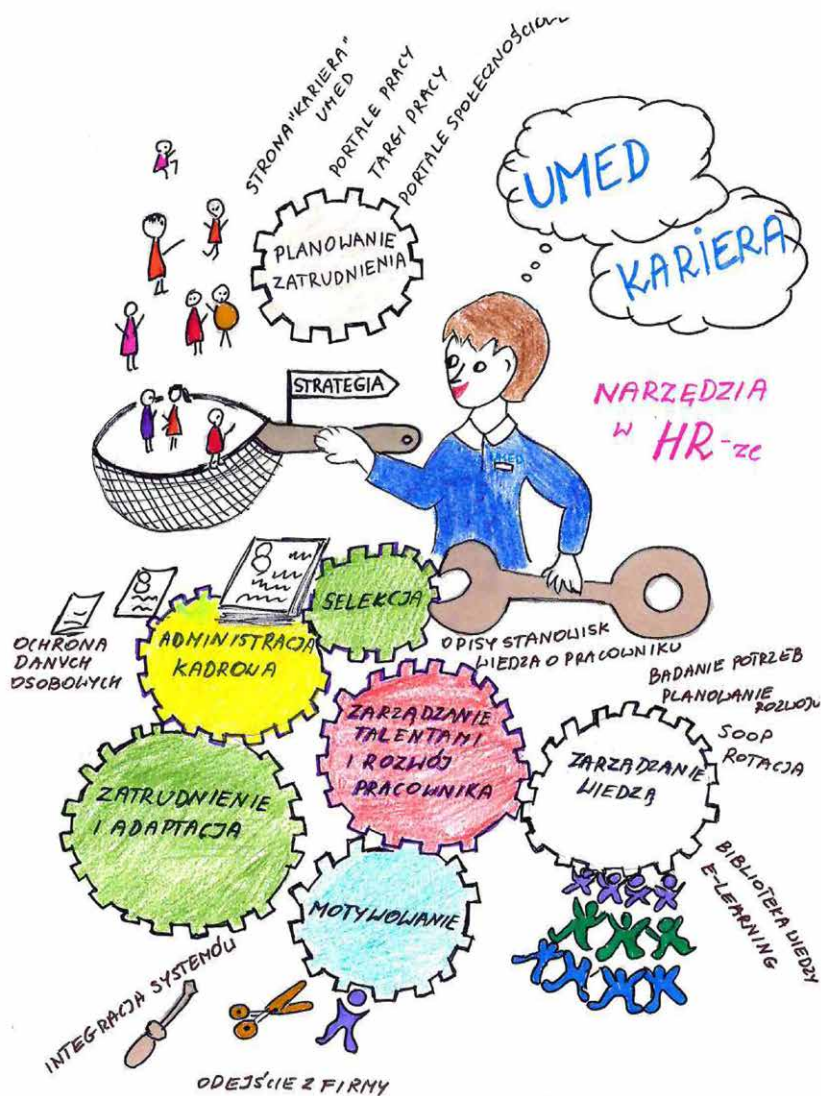 STRONA "KARIERA"
UMED
PORTALE PRACY
TARGI PRACY
PORTALE
PLANOWANIE
ZATRUDNIENIA
UMED
KARIERA
STRATEGIA
NARZĘDZIA
W HR-ze
UMED
SELEKCJA
ADMINISTRACJA
KADROWA
OCHRONA
DANYCH
OSOBOWYCH
OPISY STANOWISK
WIEDZA O PRACOWNIKU
BADANIE POTRZEB
PLANOWANIE
ROZWOJU
SOOP
ROTACJA
ZARZĄDZANIE
TALENTAMI
I ROZWÓJ
PRACOWNIKA
ZARZĄDZANIE
WIEDZĄ
ZATRUDNIENIE
I ADAPTACJA
MOTYWOWANIE
BIBLIOTEKA WIEDZY
E-LEARNING
INTEGRACJA SYSTEMÓW
ODEJŚCIE Z FIRMY